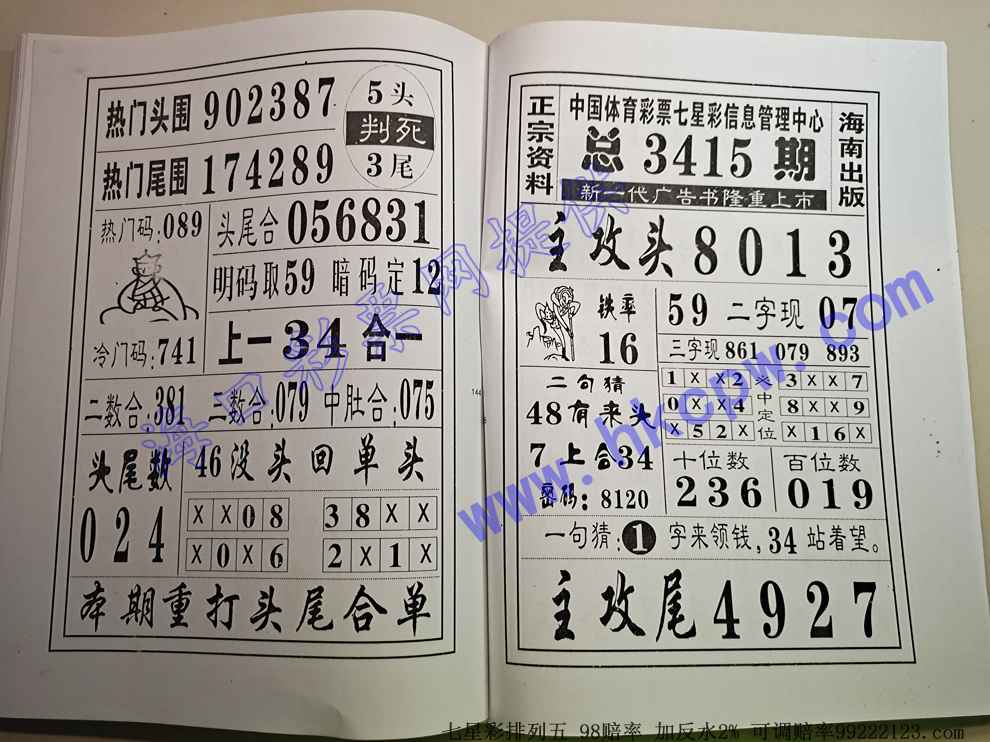 热门头围 902387
热门尾围 174289
5头
判死
3尾
热门码:089
头尾合 056831
明码取59 暗码定12
上一34合一
冷门码:741
二数合:381 三数合:079 中肚合:075
头尾数
024
46没头回单头
XX08 38XX
X0X6 2X1X
本期重打头尾合单
144
正宗资料
中国体育彩票七星彩信息管理中心
总 3415 期
新一代广告书隆重上市
海南出版
主攻头 8013
铁率
16
59 二字现 07
三字现 861 079 893
二句猜
48有来头
7上合34
密码:8120
1XX2 3XX7
0XX4 8XX9
X52X X16X
中定位
十位数
236
百位数
019
一句猜:1字来领钱,34站着望。
主攻尾 4927
海口彩票网提供
www.hkcpw.com
七星彩排列五 98赔率 加反水2% 可调赔率99222123.com